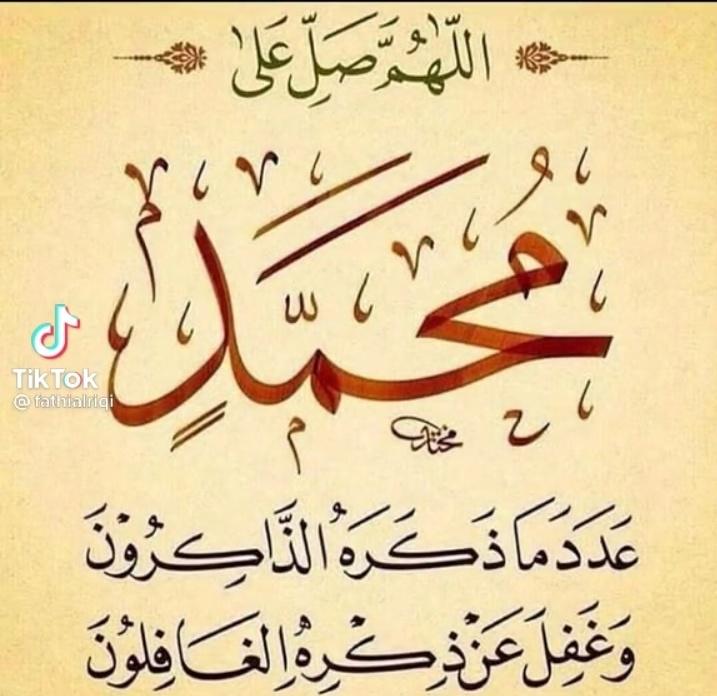 اللَّهُمَّ صَلِّ عَلَىٰ
مُحَمَّدٍ
مختار
TikTok
@fathialriqi
عَدَدَ مَا ذَكَرَهُ الذَّاكِرُونَ
وَغَفِلَ عَنْ ذِكْرِهِ الغَافِلُونَ